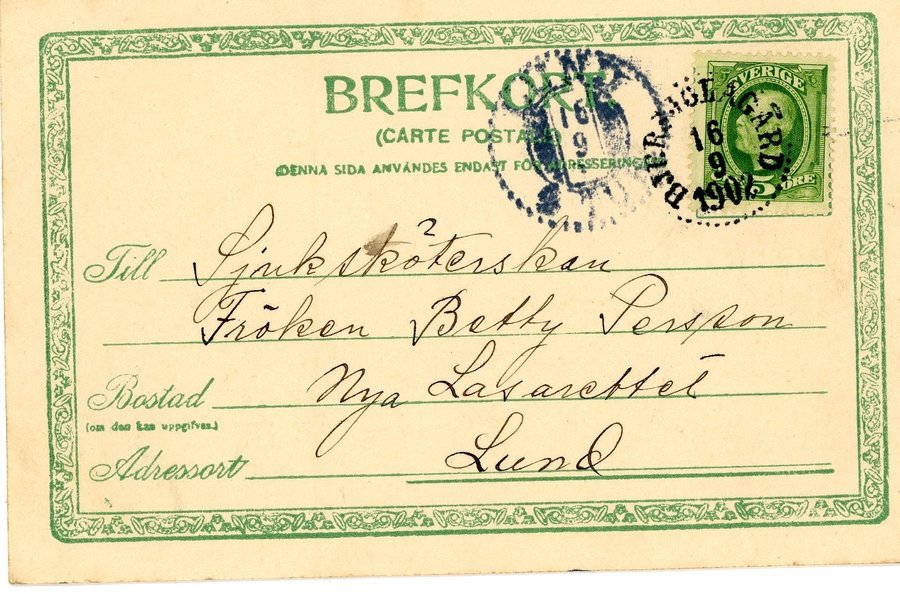 BREFKORT
(CARTE POSTALE)
(DENNA SIDA ANVÄNDES ENDAST FÖR ADRESSERING)
SVERIGE
5 ÖRE
16
9
BJERESJÖLAGÅRD
16
9
1902
Till Sjuksköterskan
Fröken Betty Persson
Bostad Nya Lasarettet
(om den kan uppgifvas.)
Adressort Lund